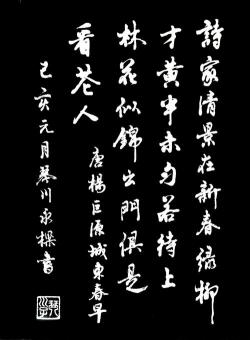 詩家清景在新春绿柳
才黄半未匀若待上
林花似錦出門俱是
看花人
唐楊巨源城東春早
己亥元月琴川永樑書